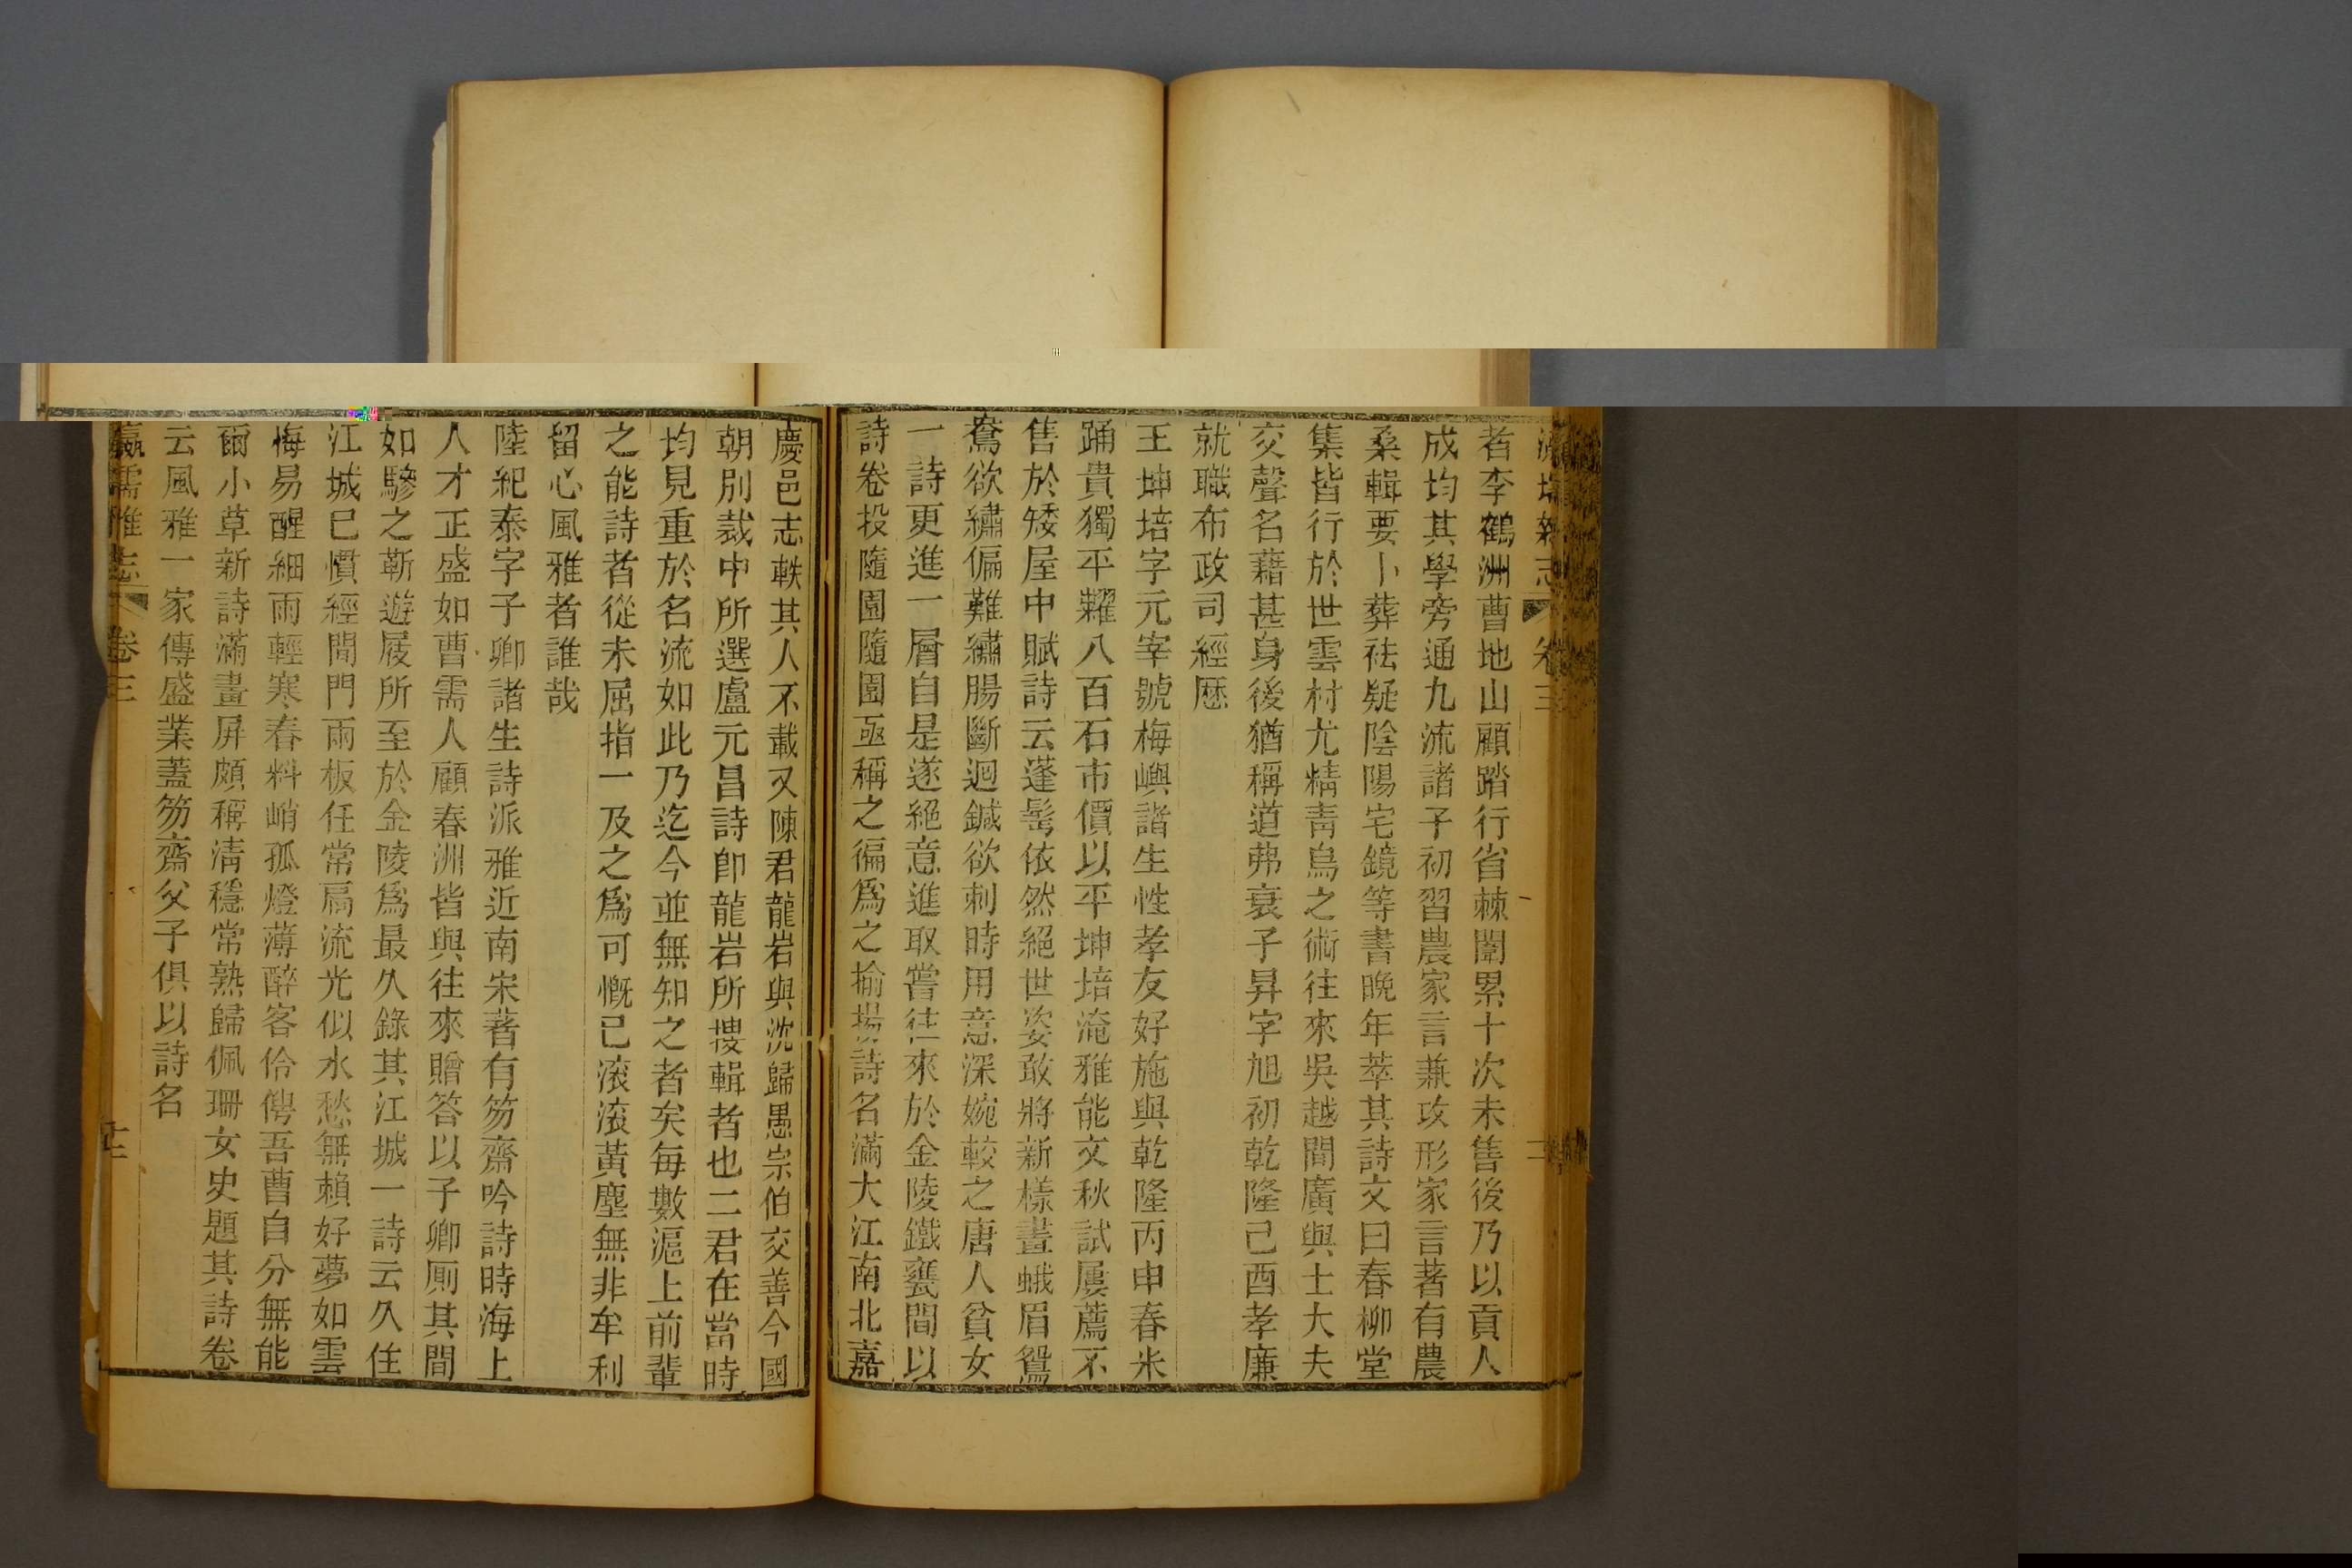 瀛壖雜志 卷三
者李鶴洲曹地山顧踏行省棘闈累十次未售後乃以貢人
成均其學旁通九流諸子初習農家言兼攻形家言著有農
桑輯要卜葬祛疑陰陽宅鏡等書晚年萃其詩文曰春柳堂
集皆行於世雲村尤精靑烏之術往來吳越間廣與士大夫
交聲名藉甚身後猶稱道弗衰子昇字旭初乾隆己酉孝廉
就職布政司經歷
王坤培字元宰號梅嶼諧生性孝友好施與乾隆丙申春米
踊貴獨平糶八百石市價以平坤培淹雅能文秋試屢薦不
售於矮屋中賦詩云蓬髩依然絕世姿敢將新樣畫蛾眉鴛
鴦欲繡偏難繡腸斷迴鍼欲刺時用意深婉較之唐人貧女
一詩更進一層自是遂絕意進取嘗往來於金陵鐵甕間以
詩卷投隨園隨園亟稱之徧爲之揄揚詩名滿大江南北嘉
慶邑志軼其人不載又陳君龍岩與沈歸愚宗伯交善今國
朝別裁中所選盧元昌詩卽龍岩所搜輯者也二君在當時
均見重於名流如此乃迄今並無知之者矣每數滬上前輩
之能詩者從未屈指一及之爲可慨已滚滚黃塵無非牟利
留心風雅者誰哉
陸紀泰字子卿諸生詩派雅近南宋著有笏齋吟詩時海上
人才正盛如曹需人顧春洲皆與往來贈答以子卿厠其間
如驂之靳遊屐所至於金陵爲最久錄其江城一詩云久住
江城已慣經閉門雨板任常扃流光似水愁無賴好夢如雲
悔易醒細雨輕寒春料峭孤燈薄醉客伶俜吾曹自分無能
爾小草新詩滿畫屏頗稱清穩常熟歸佩珊女史題其詩卷
云風雅一家傳盛業蓋笏齋父子俱以詩名
瀛壖雜志 卷三